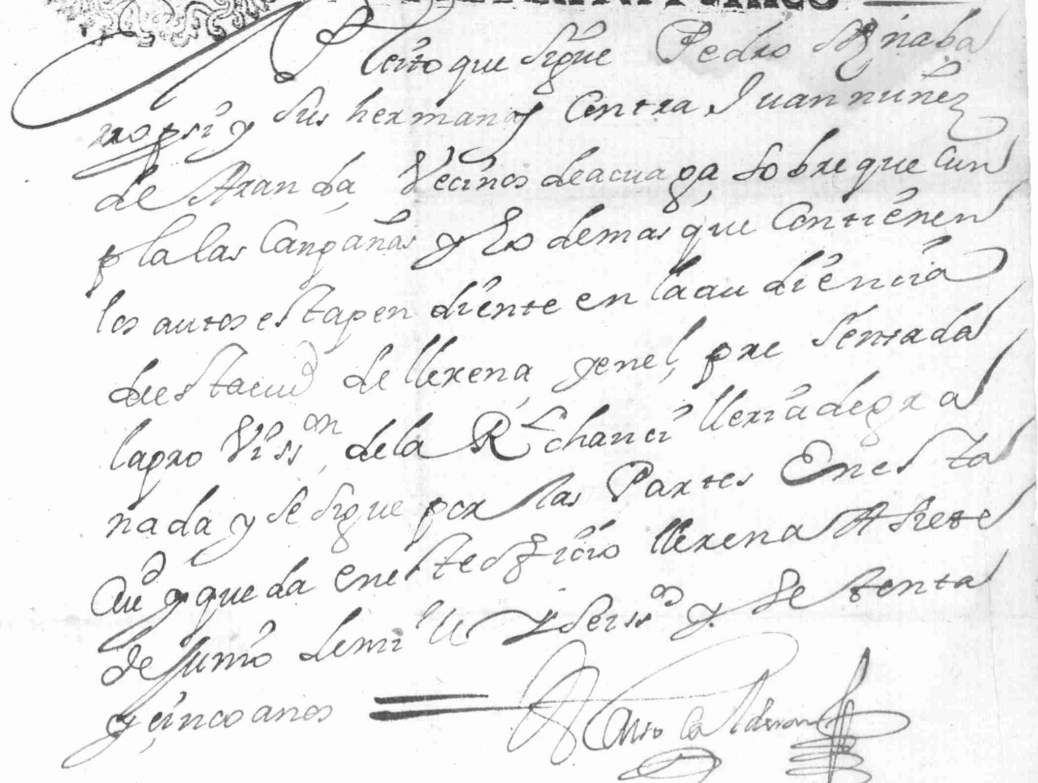 Pleito que sigue Pedro
rro por si y sus hermanas Contra Juan nuñez
de Aranda, Vecinos de acuaga, sobre que Cun
pla las Canpañas y lo demas que Contienen
los autos esta pendiente en la audiencia
de esta ciud de llerena, y en el, pre sentada
la provisson, de la Rl chancilleria de gra
nada y se sigue por las Partes En esta
Aud y queda en este oficio llerena A siete
de junio de mill Y seiss.os y setenta
y cinco años